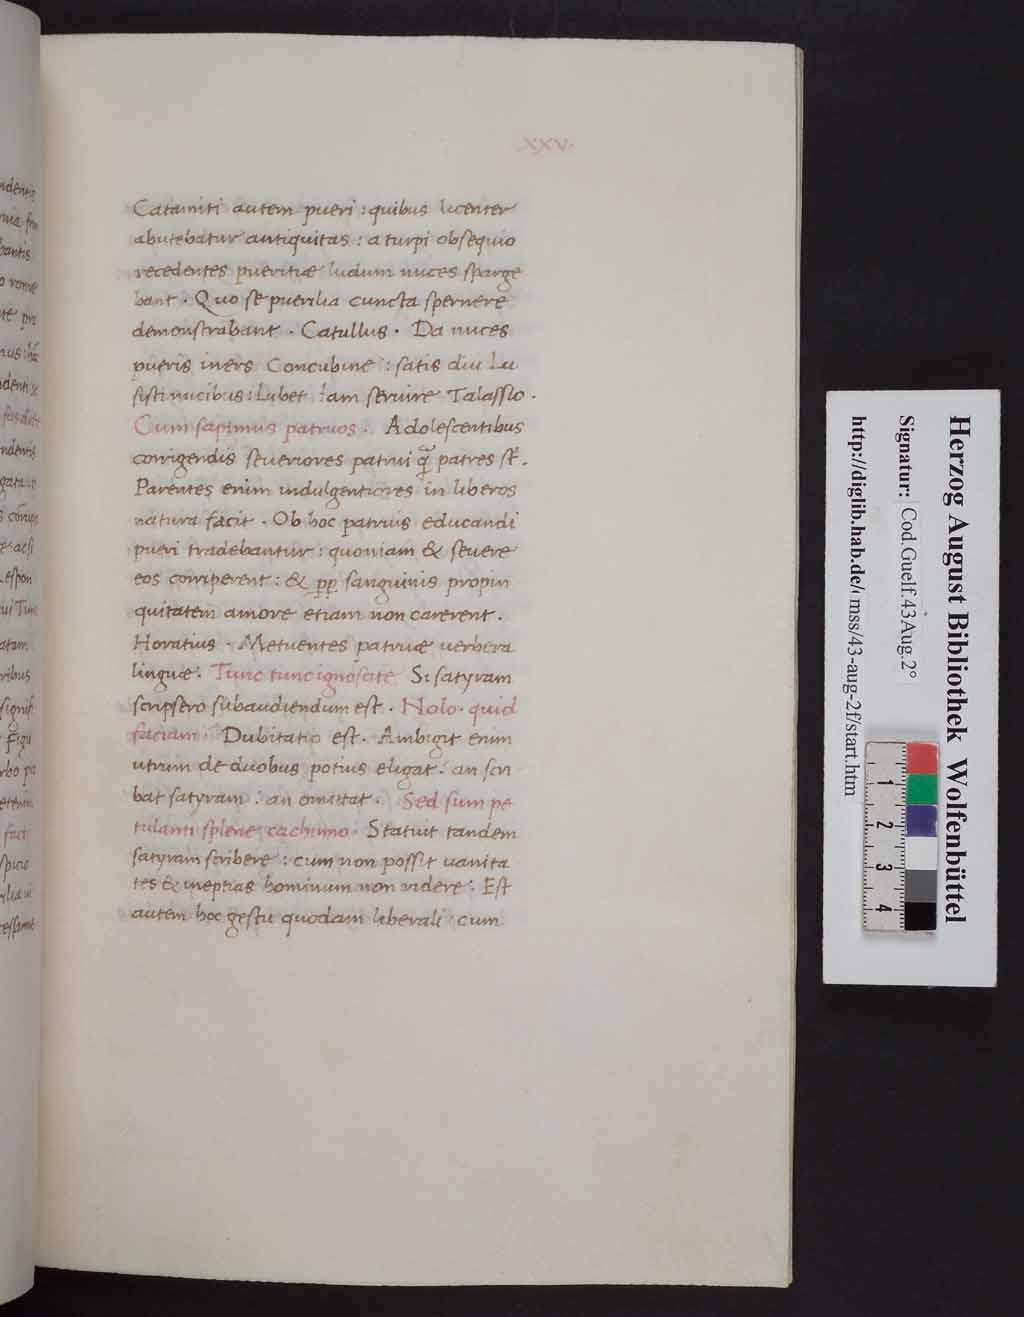 XXV.
Catamiti autem pueri : quibus licenter
abutebatur antiquitas : a turpi obsequio
recedentes pueritiæ ludum nuces sparge
bant . Quo se puerilia cuncta spernere
demonstrabant . Catullus . Da nuces
pueris iners Concubine : satis diu Lu
sisti nucibus : Lubet Iam seruire Talassio .
Cum sapimus patruos . Adolescentibus
corrigendis seueriores patrui q̃ patres st̄ .
Parentes enim indulgentiores in liberos
natura facit . Ob hoc patruis educandi
pueri tradebantur : quoniam & seuere
eos corriperent : & pp sanguinis propin
quitatem amore etiam non carerent .
Horatius . Metuentes patruæ uerbera
linguæ . Tunc tunc ignoscite Si satyram
scripsero subaudiendum est . Nolo . quid
faciam . Dubitatio est . Ambigit enim
utrum de duobus potius eligat : an scri
bat satyram : an omittat . Sed sum pe
tulanti splene cachinno . Statuit tandem
satyram scribere : cum non possit uanita
tes & ineptias hominum non ridere : Est
autem hoc gestu quodam liberali cum
ndentis
bantis
denti se
ndentis
ribus
Herzog August Bibliothek Wolfenbüttel
Signatur: Cod.Guelf.43 Aug.2°
http://diglib.hab.de/ mss/43-aug-2f/start.htm
1
2
3
4